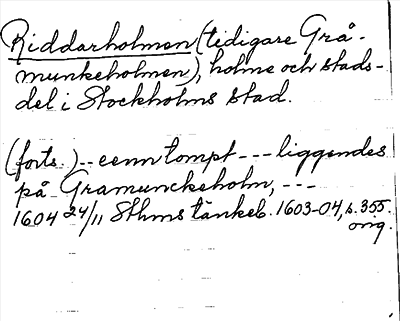 Riddarholmen (tidigare Grå-
munkeholmen), holme och stads-
del i Stockholms stad.
(forts.) -- eenn tompt --- liggendes
på Gramunckeholm, ---
1604 24/11 Sthms tänkeb. 1603-04, s. 355.
orig.